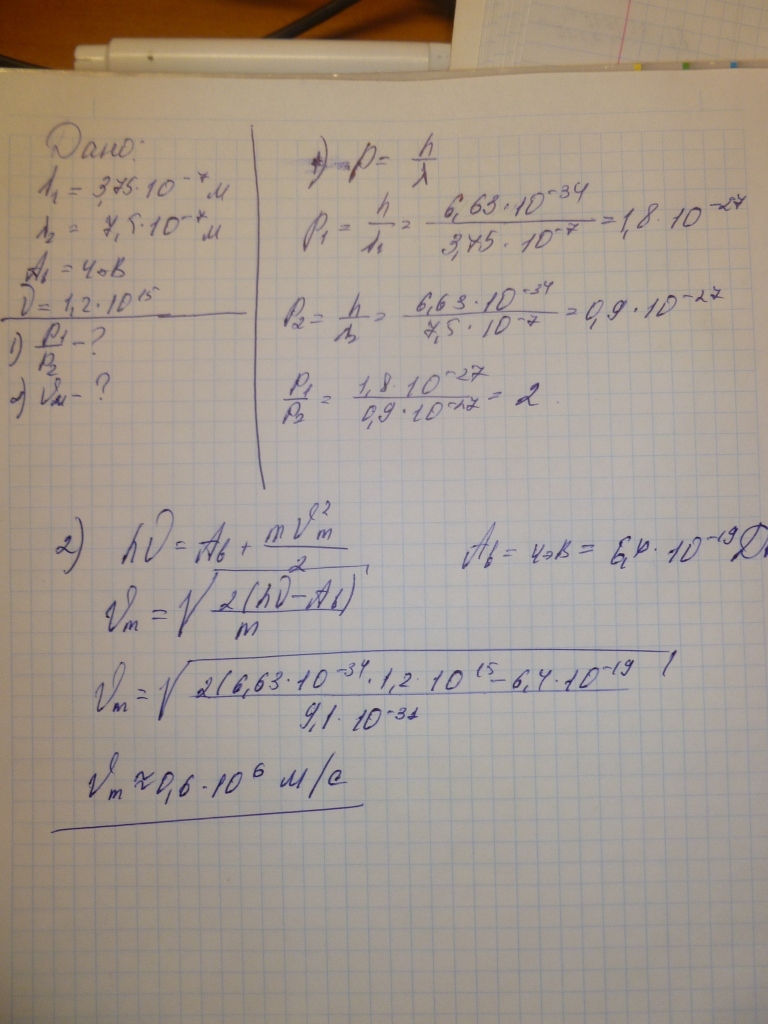 Дано:
λ₁ = 3,75·10⁻⁷ м
λ₂ = 7,5·10⁻⁷ м
Aв = 4эВ
ν = 1,2·10¹⁵
1) P₁/P₂ - ?
2) νм - ?
1) P = h/λ
P₁ = h/λ₁ = 6,63·10⁻³⁴ / 3,75·10⁻⁷ = 1,8·10⁻²⁷
P₂ = h/λ₂ = 6,63·10⁻³⁴ / 7,5·10⁻⁷ = 0,9·10⁻²⁷
P₁/P₂ = 1,8·10⁻²⁷ / 0,9·10⁻²⁷ = 2
2) hν = Aв + mνm²/2
Aв = 4эВ = 6,4·10⁻¹⁹
νm = √(2(hν-Aв) / m)
νm = √(2(6,63·10⁻³⁴·1,2·10¹⁵-6,4·10⁻¹⁹ / 9,1·10⁻³¹)
νm ≈ 0,6·10⁶ м/с